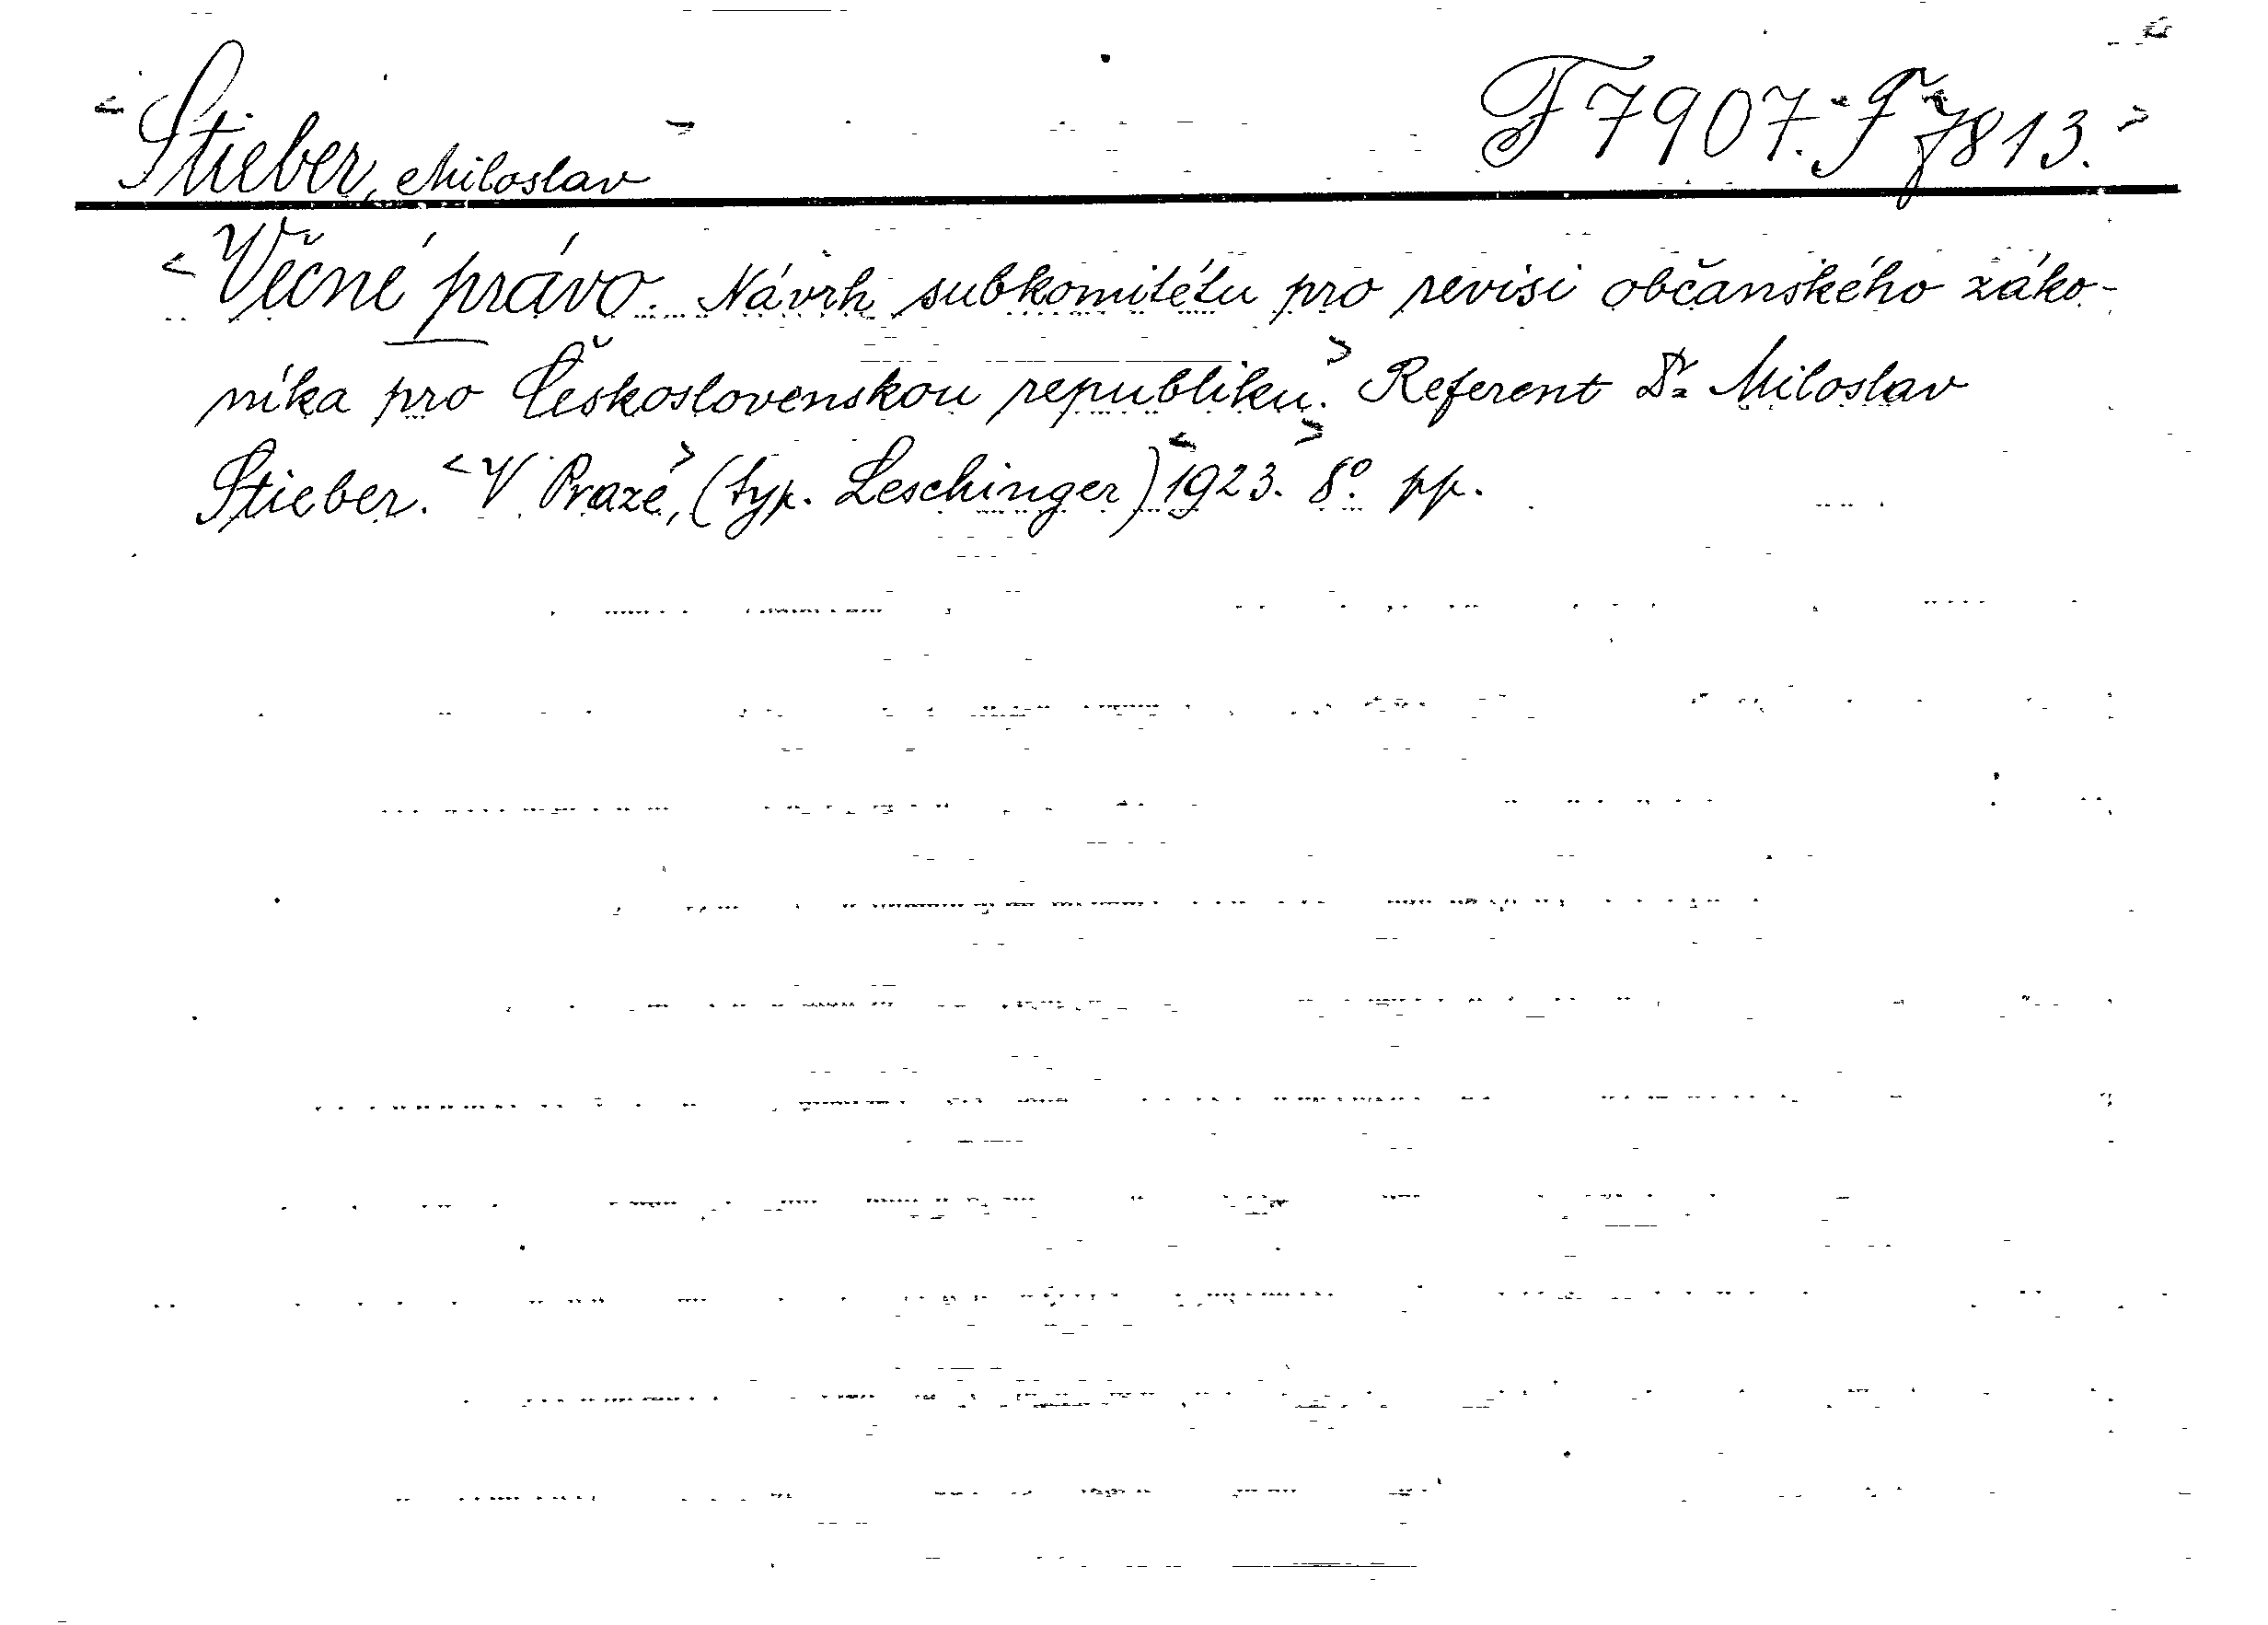 <Stieber, Miloslav> F 7907. <F 7813.>
<Věcné právo. Návrh subkomitétu pro revisi občanského záko-
níka pro Československou republiku.> Referent Dr. Miloslav
Stieber. <V Praze,> (typ. Leschinger) <1923.> 8°. pp.